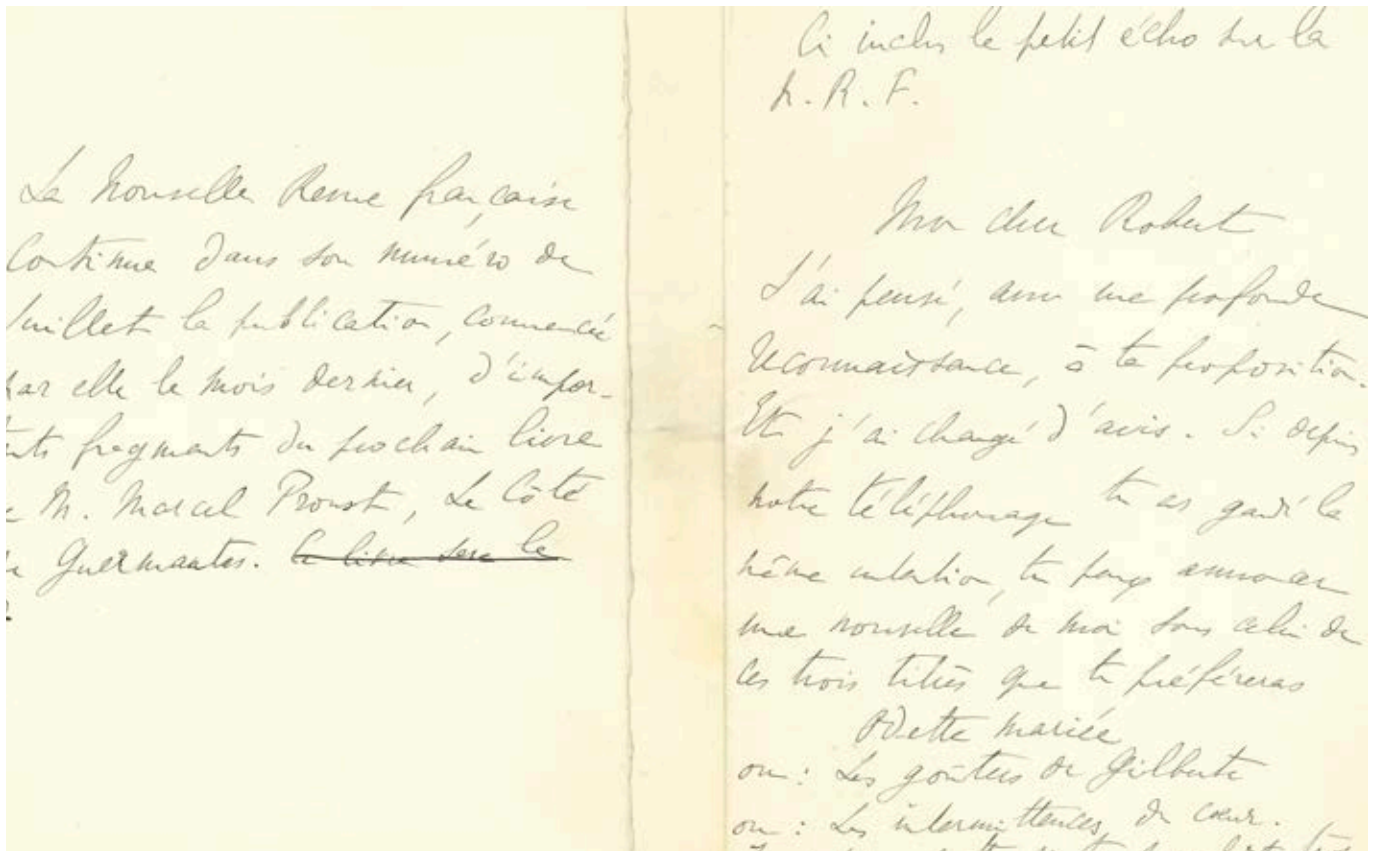 La Nouvelle Revue française
Continue dans son numéro de
Juillet la publication, commencée
par elle le mois dernier, d'impor-
ts fragments du prochain livre
M. Marcel Proust, Le Côté
Guermantes. Ce livre sera le
Ci inclus le petit écho sur la
N. R. F.
Mon cher Robert
J'ai pensé, avec une profonde
reconnaissance, à ta proposition.
Et j'ai changé d'avis. Si depuis
notre téléphonage tu as gardé la
même intention, tu peux annoncer
une nouvelle de moi sous celui de
ces trois titres que tu préféreras
Odette mariée
ou : Les goûters de Gilberte
ou : Les intermittences du cœur.